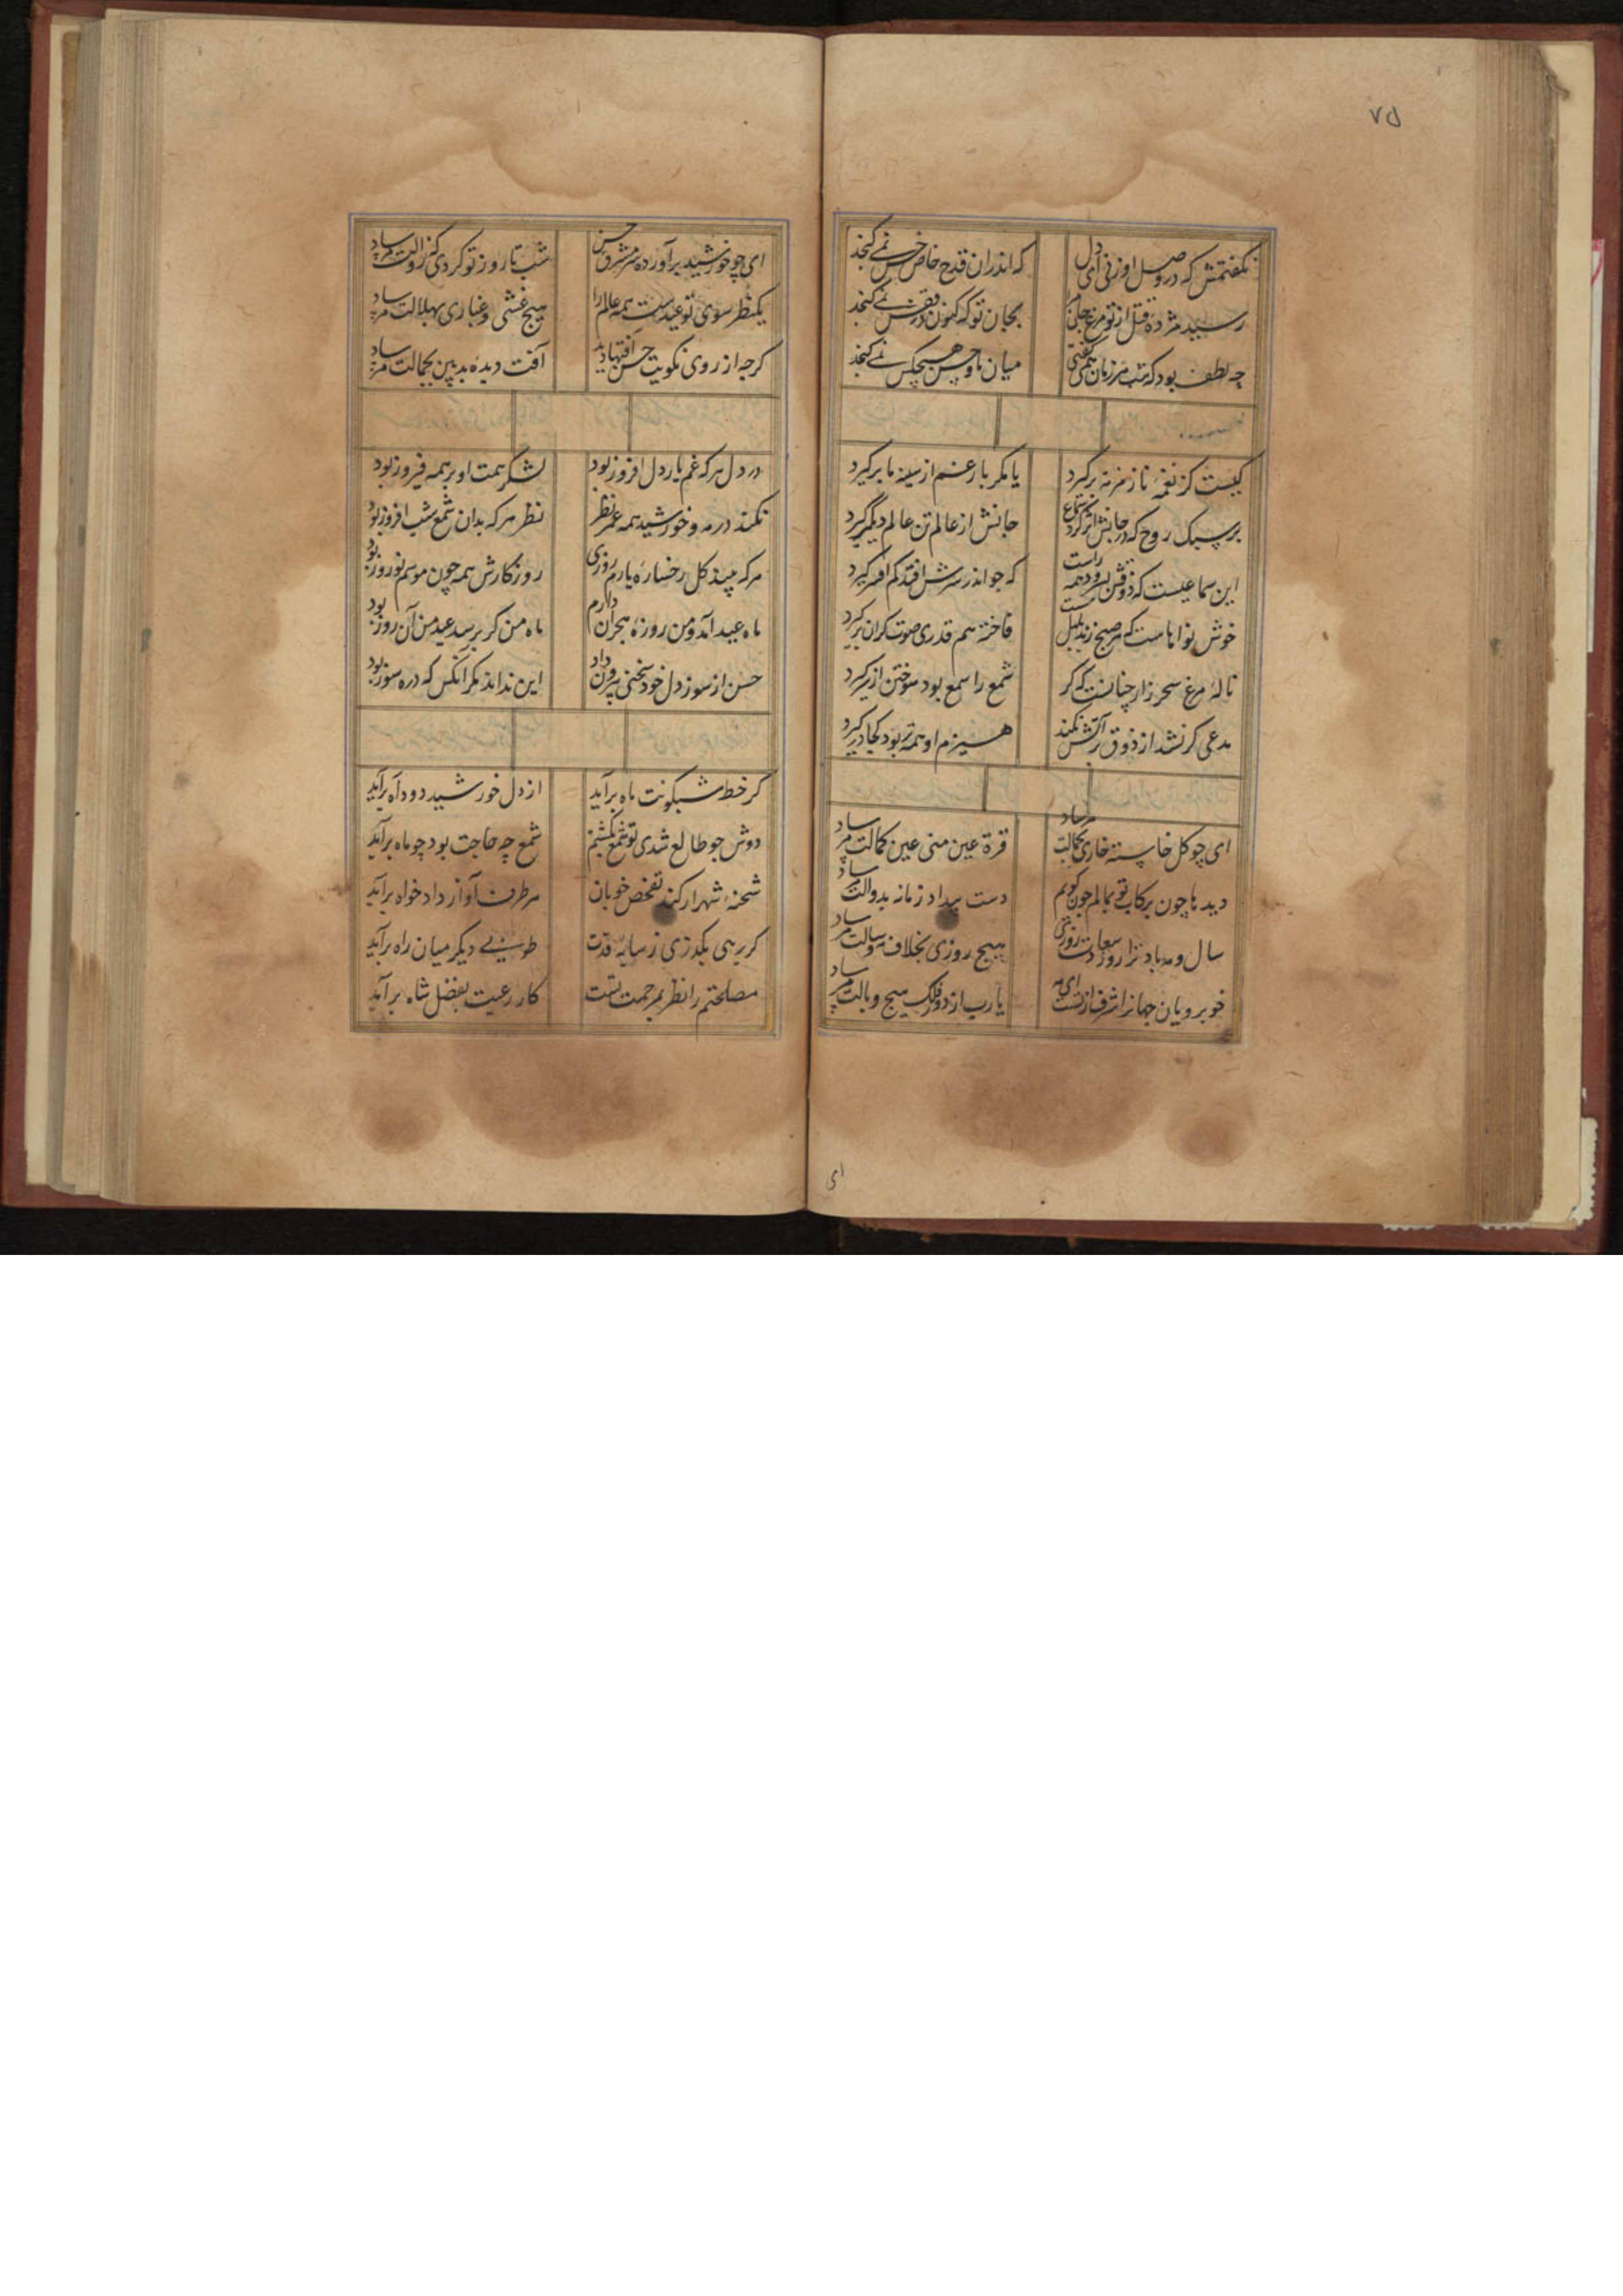 ۷۵
نگفتمش که در وصل او زنی ای دل که اندران قدح خاص خس نمی گنجد
رسید مژده قتل از تو مرغ جانرا بجان تو که کنون در قفس نمی گنجد
چه لطف بود که شب مر زمان همی گفتی میان ما و حسن هیچکس نمی گنجد
کیست کز نغمهٔ ما زمزمه برگیرد یا مگر بار غم از سینه ما برگیرد
هر سبک روح که در جانش اثر کرد سماع جانش از عالم تن عالم دیگر گیرد
این سماعیست که ذوقش نبود همه راست که جو اندر سرش افتد کم افسر گیرد
خوش نوا هاست که هر صبح زند بلبل مست فاخته هم قدری صوت گران برگیرد
نالهٔ مرغ سحر زار چنانست که گر شمع را سمع بود سوختن از سر گیرد
مدعی گر نشد از ذوق تر آتش نکند هیزم او همه تر بود کجا در گیرد
ای چو گل خاسته خاری بجمالت مرساد قرة عین منی عین کمالت مرساد
دید ها چون برکاب تو بمالم چون گویم دست بیداد زمانه بدوالت مرساد
سال و مه باد ترا روز سعادت روزی هیچ روزی بخلاف مه و سالت مرساد
خوبرویان جهانرا شرف از تست ای مه یارب از دور فلک هیچ وبالت مرساد
ای
ای چو خورشید برآورده سر از مشرق حسن شب تا روز تو کردی که زوالت مرساد
یکنظر سوی تو عیدست همه عالم را هیچ غشی و غباری بهلالت مرساد
گرچه از روی نکویت حسن آفتها دید آفت دیدهٔ بد بین بجمالت مرساد
در دل هر که غم یار دل افروز بود لشگر همت او بر همه فیروز بود
نکند در مه و خورشید همه عمر نظر نظر هر که بدان شمع شب افروز بود
هر که بیند گل رخسارهٔ یارم روزی روزگارش همه چون موسم نوروز بود
ماه عید آمد و من روزهٔ هجران دارم ماه من گر برسد عید من آن روز بود
حسن از سوز دل خود سخنی بیرون داد این نداند مگر آنکس که درو سوز بود
گر خط شبگونت ماه برآید از دل خورشید دود آه برآید
دوش جو طالع شدی تو شمع بکشتیم شمع چه حاجت بود چو ماه برآید
شحنهٔ شهر ار کند تفحص خوبان هر طرف آواز دادخواه برآید
گر برهی بگذری ز سایهٔ قدت طوبیی دیگر میان راه برآید
مصلحتم را نظر بمرحمت تست کار رعیت بفضل شاه برآید